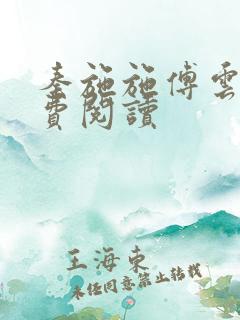 秦施施傅雲
費閱讀
王海東
未经同意禁止转载